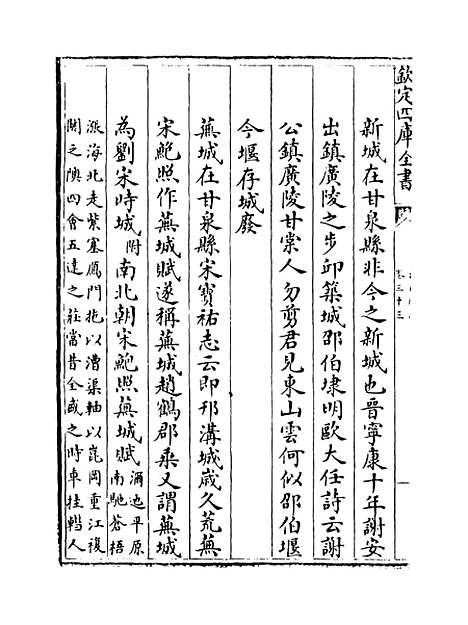 欽定四庫全書
卷三十三
新城在甘泉縣非今之新城也晉寧康十年謝安
出鎮廣陵之步邱築城邵伯埭明歐大任詩云謝
公鎮廣陵甘棠人勿剪君見東山雲何似邵伯堰
今堰存城廢
蕪城在甘泉縣宋寶祐志云即邗溝城歲久荒蕪
宋鮑照作蕪城賦遂稱蕪城趙鶴郡乘又謂蕪城
為劉宋時城附南北朝宋鮑照蕪城賦瀰迤平原南馳蒼梧
漲海北走紫塞鴈門拖以漕渠軸以崑岡重江複
關之隩四會五達之莊當昔全盛之時車挂轊人